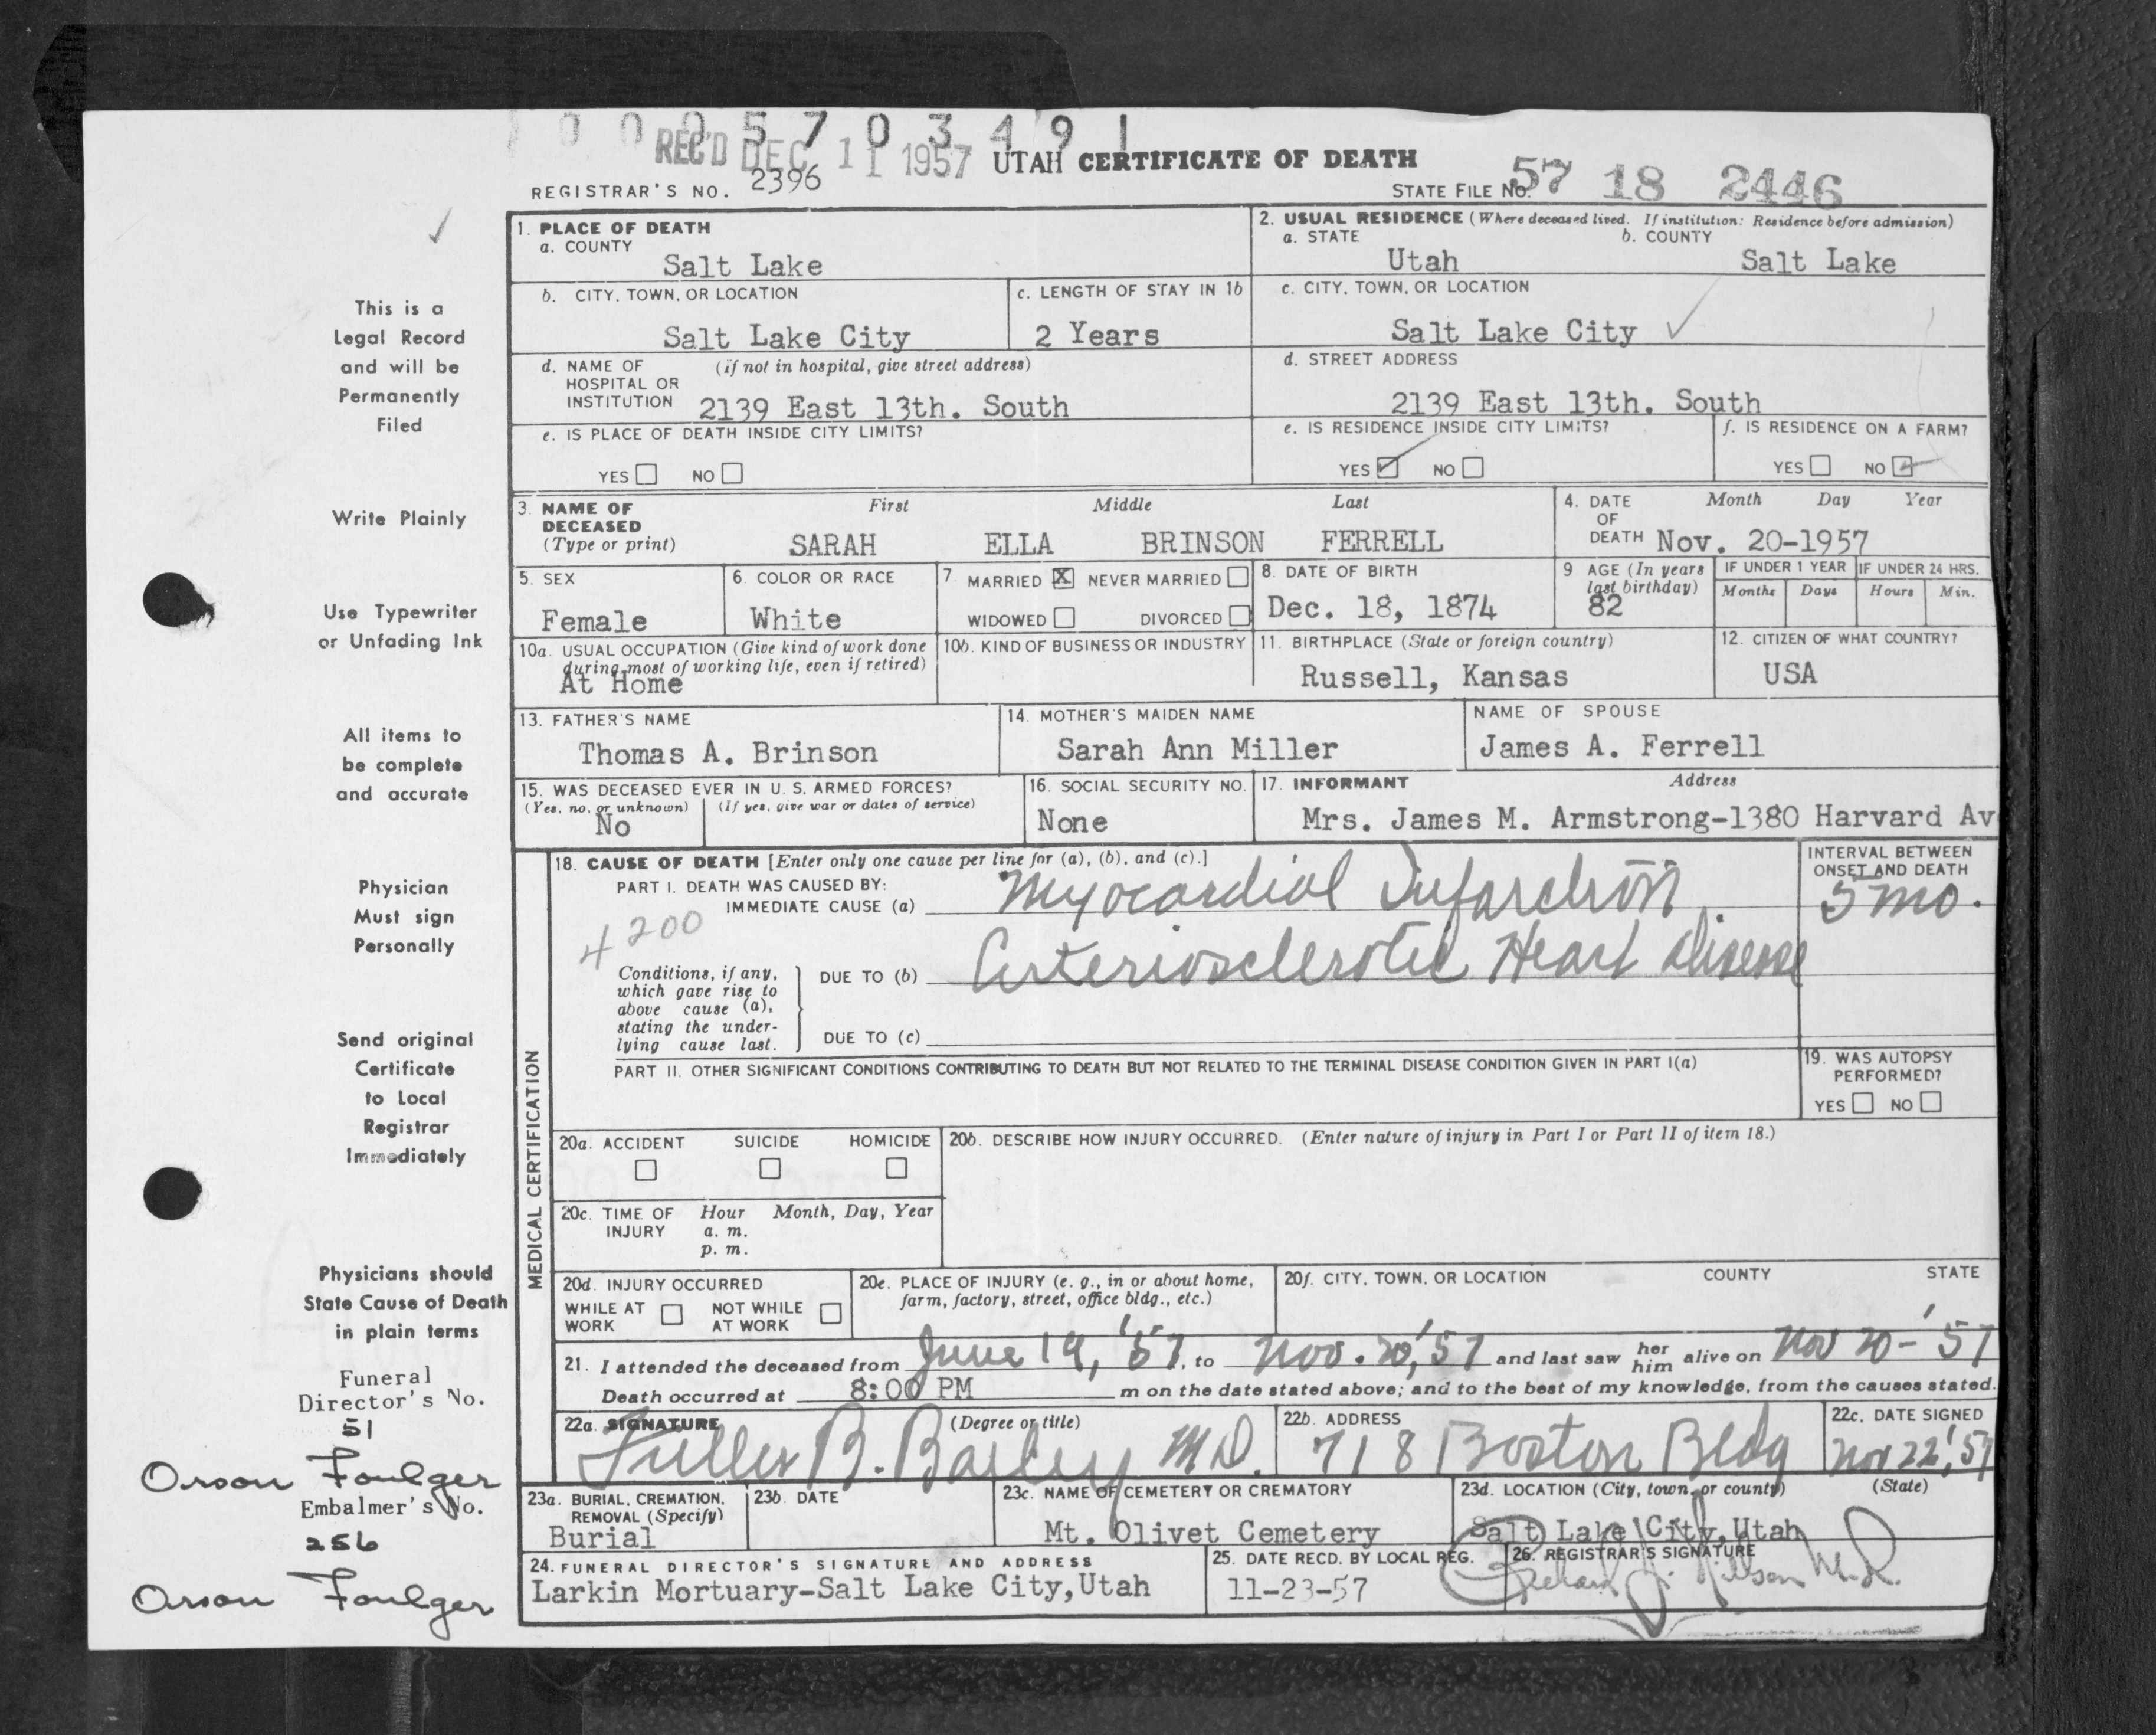 0 0 0 5 7 0 3 4 9 1
REC'D DEC 11 1957 UTAH CERTIFICATE OF DEATH
REGISTRAR'S NO. 2396 STATE FILE NO. 57 18 2446
This is a
Legal Record
and will be
Permanently
Filed
Write Plainly
Use Typewriter
or Unfading Ink
All items to
be complete
and accurate
Physician
Must sign
Personally
Send original
Certificate
to Local
Registrar
Immediately
Physicians should
State Cause of Death
in plain terms
Funeral
Director's No.
51
Orson Foulger
Embalmer's No.
256
Orson Foulger
1. PLACE OF DEATH
a. COUNTY
Salt Lake
2. USUAL RESIDENCE (Where deceased lived. If institution: Residence before admission)
a. STATE b. COUNTY
Utah Salt Lake
b. CITY, TOWN, OR LOCATION
Salt Lake City
c. LENGTH OF STAY IN 1b
2 Years
c. CITY, TOWN, OR LOCATION
Salt Lake City
d. NAME OF (if not in hospital, give street address)
HOSPITAL OR
INSTITUTION 2139 East 13th. South
d. STREET ADDRESS
2139 East 13th. South
e. IS PLACE OF DEATH INSIDE CITY LIMITS?
YES NO
e. IS RESIDENCE INSIDE CITY LIMITS?
YES NO
f. IS RESIDENCE ON A FARM?
YES NO
3. NAME OF First Middle Last
DECEASED
(Type or print) SARAH ELLA BRINSON FERRELL
4. DATE Month Day Year
OF
DEATH Nov. 20-1957
5. SEX
Female
6. COLOR OR RACE
White
7. MARRIED X NEVER MARRIED
WIDOWED DIVORCED
8. DATE OF BIRTH
Dec. 18, 1874
9 AGE (In years
last birthday)
82
IF UNDER 1 YEAR IF UNDER 24 HRS.
Months Days Hours Min.
10a. USUAL OCCUPATION (Give kind of work done
during most of working life, even if retired)
At Home
10b. KIND OF BUSINESS OR INDUSTRY
11. BIRTHPLACE (State or foreign country)
Russell, Kansas
12. CITIZEN OF WHAT COUNTRY?
USA
13. FATHER'S NAME
Thomas A. Brinson
14. MOTHER'S MAIDEN NAME
Sarah Ann Miller
NAME OF SPOUSE
James A. Ferrell
15. WAS DECEASED EVER IN U. S. ARMED FORCES?
(Yes, no, or unknown) (If yes, give war or dates of service)
No
16. SOCIAL SECURITY NO.
None
17. INFORMANT Address
Mrs. James M. Armstrong-1380 Harvard Av
MEDICAL CERTIFICATION
18. CAUSE OF DEATH [Enter only one cause per line for (a), (b), and (c).]
PART I. DEATH WAS CAUSED BY:
IMMEDIATE CAUSE (a) Myocardial Infarction
INTERVAL BETWEEN
ONSET AND DEATH
5 mo.
4200
Conditions, if any,
which gave rise to
above cause (a),
stating the under-
lying cause last.
DUE TO (b) Arteriosclerotic Heart disease
DUE TO (c)
PART II. OTHER SIGNIFICANT CONDITIONS CONTRIBUTING TO DEATH BUT NOT RELATED TO THE TERMINAL DISEASE CONDITION GIVEN IN PART I(a)
19. WAS AUTOPSY
PERFORMED?
YES NO
20a. ACCIDENT SUICIDE HOMICIDE
20b. DESCRIBE HOW INJURY OCCURRED. (Enter nature of injury in Part I or Part II of item 18.)
20c. TIME OF Hour Month, Day, Year
INJURY a. m.
p. m.
20d. INJURY OCCURRED
WHILE AT NOT WHILE
WORK AT WORK
20e. PLACE OF INJURY (e. g., in or about home,
farm, factory, street, office bldg., etc.)
20f. CITY, TOWN, OR LOCATION COUNTY STATE
21. I attended the deceased from June 19, '57, to Nov. 20, '57 and last saw her him alive on Nov 20-'57
Death occurred at 8:00 PM m on the date stated above; and to the best of my knowledge, from the causes stated.
22a. SIGNATURE (Degree or title)
Fuller B. Bailey M D.
22b. ADDRESS
718 Boston Bldg
22c. DATE SIGNED
Nov 22, '57
23a. BURIAL, CREMATION,
REMOVAL (Specify)
Burial
23b. DATE
23c. NAME OF CEMETERY OR CREMATORY
Mt. Olivet Cemetery
23d. LOCATION (City, town, or county) (State)
Salt Lake City, Utah
24. FUNERAL DIRECTOR'S SIGNATURE AND ADDRESS
Larkin Mortuary-Salt Lake City, Utah
25. DATE RECD. BY LOCAL REG.
11-23-57
26. REGISTRAR'S SIGNATURE
M.D.